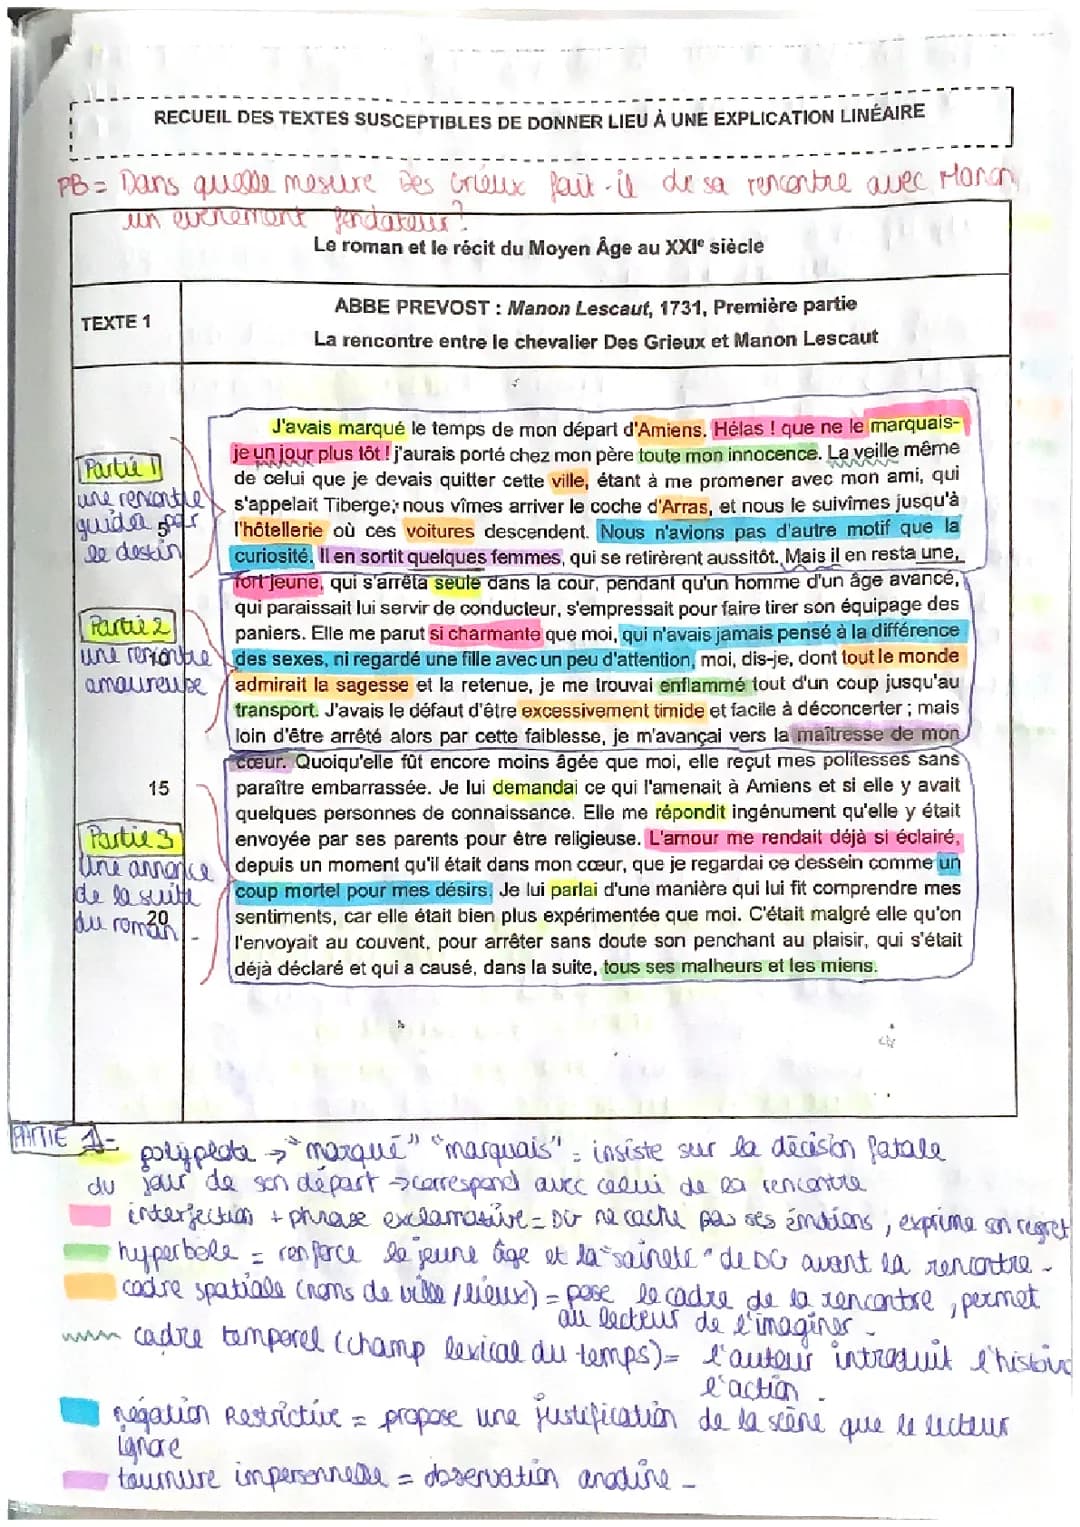 RECUEIL DES TEXTES SUSCEPTIBLES DE DONNER LIEU À UNE EXPLICATION LINÉAIRE
PB = Dans quelle mesure Des Grieux fait-il de sa rencontre avec Manon
un evenement fondateur?
Le roman et le récit du Moyen Âge au XXIe siècle
TEXTE 1
ABBE PREVOST : Manon Lescaut, 1731, Première partie
La rencontre entre le chevalier Des Grieux et Manon Lescaut
J'avais marqué le temps de mon départ d'Amiens. Hélas ! que ne le marquais-
je un jour plus tôt ! j'aurais porté chez mon père toute mon innocence. La veille même
de celui que je devais quitter cette ville, étant à me promener avec mon ami, qui
s'appelait Tiberge, nous vîmes arriver le coche d'Arras, et nous le suivîmes jusqu'à
l'hôtellerie où ces voitures descendent. Nous n'avions pas d'autre motif que la
curiosité. Il en sortit quelques femmes, qui se retirèrent aussitôt. Mais il en resta une,
fort jeune, qui s'arrêta seule dans la cour, pendant qu'un homme d'un âge avancé,
qui paraissait lui servir de conducteur, s'empressait pour faire tirer son équipage des
paniers. Elle me parut si charmante que moi, qui n'avais jamais pensé à la différence
des sexes, ni regardé une fille avec un peu d'attention, moi, dis-je, dont tout le monde
admirait la sagesse et la retenue, je me trouvai enflammé tout d'un coup jusqu'au
transport. J'avais le défaut d'être excessivement timide et facile à déconcerter ; mais
loin d'être arrêté alors par cette faiblesse, je m'avançai vers la maîtresse de mon
cœur. Quoiqu'elle fût encore moins âgée que moi, elle reçut mes politesses sans
paraître embarrassée. Je lui demandai ce qui l'amenait à Amiens et si elle y avait
quelques personnes de connaissance. Elle me répondit ingénument qu'elle y était
envoyée par ses parents pour être religieuse. L'amour me rendait déjà si éclairé,
depuis un moment qu'il était dans mon cœur, que je regardai ce dessein comme un
coup mortel pour mes désirs. Je lui parlai d'une manière qui lui fit comprendre mes
sentiments, car elle était bien plus expérimentée que moi. C'était malgré elle qu'on
l'envoyait au couvent, pour arrêter sans doute son penchant au plaisir, qui s'était
déjà déclaré et qui a causé, dans la suite, tous ses malheurs et les miens.
Partie 1
une rencontre
guidée par
5
le destin
Partie 2
une rencontre
amoureuse
15
Partie 3
Une annonce
de la suite
du roman
20
PARTIE 1 =
polyptote → "marqué" "marquais" = insiste sur la décision fatale
du jour de son départ → correspond avec celui de la rencontre
interjection + phrase exclamative = DG ne cache pas ses émotions, exprime son regret
hyperbole = renforce le jeune âge et la "saineté" de DG avant la rencontre -
cadre spatiale (noms de ville / lieux) = pose le cadre de la rencontre, permet
au lecteur de l'imaginer -
cadre temporel (champ lexical du temps) = l'auteur introduit l'histoire
l'action -
négation Restrictive = propose une justification de la scène que le lecteur
ignore
tournure impersonnelle = observation anodine -